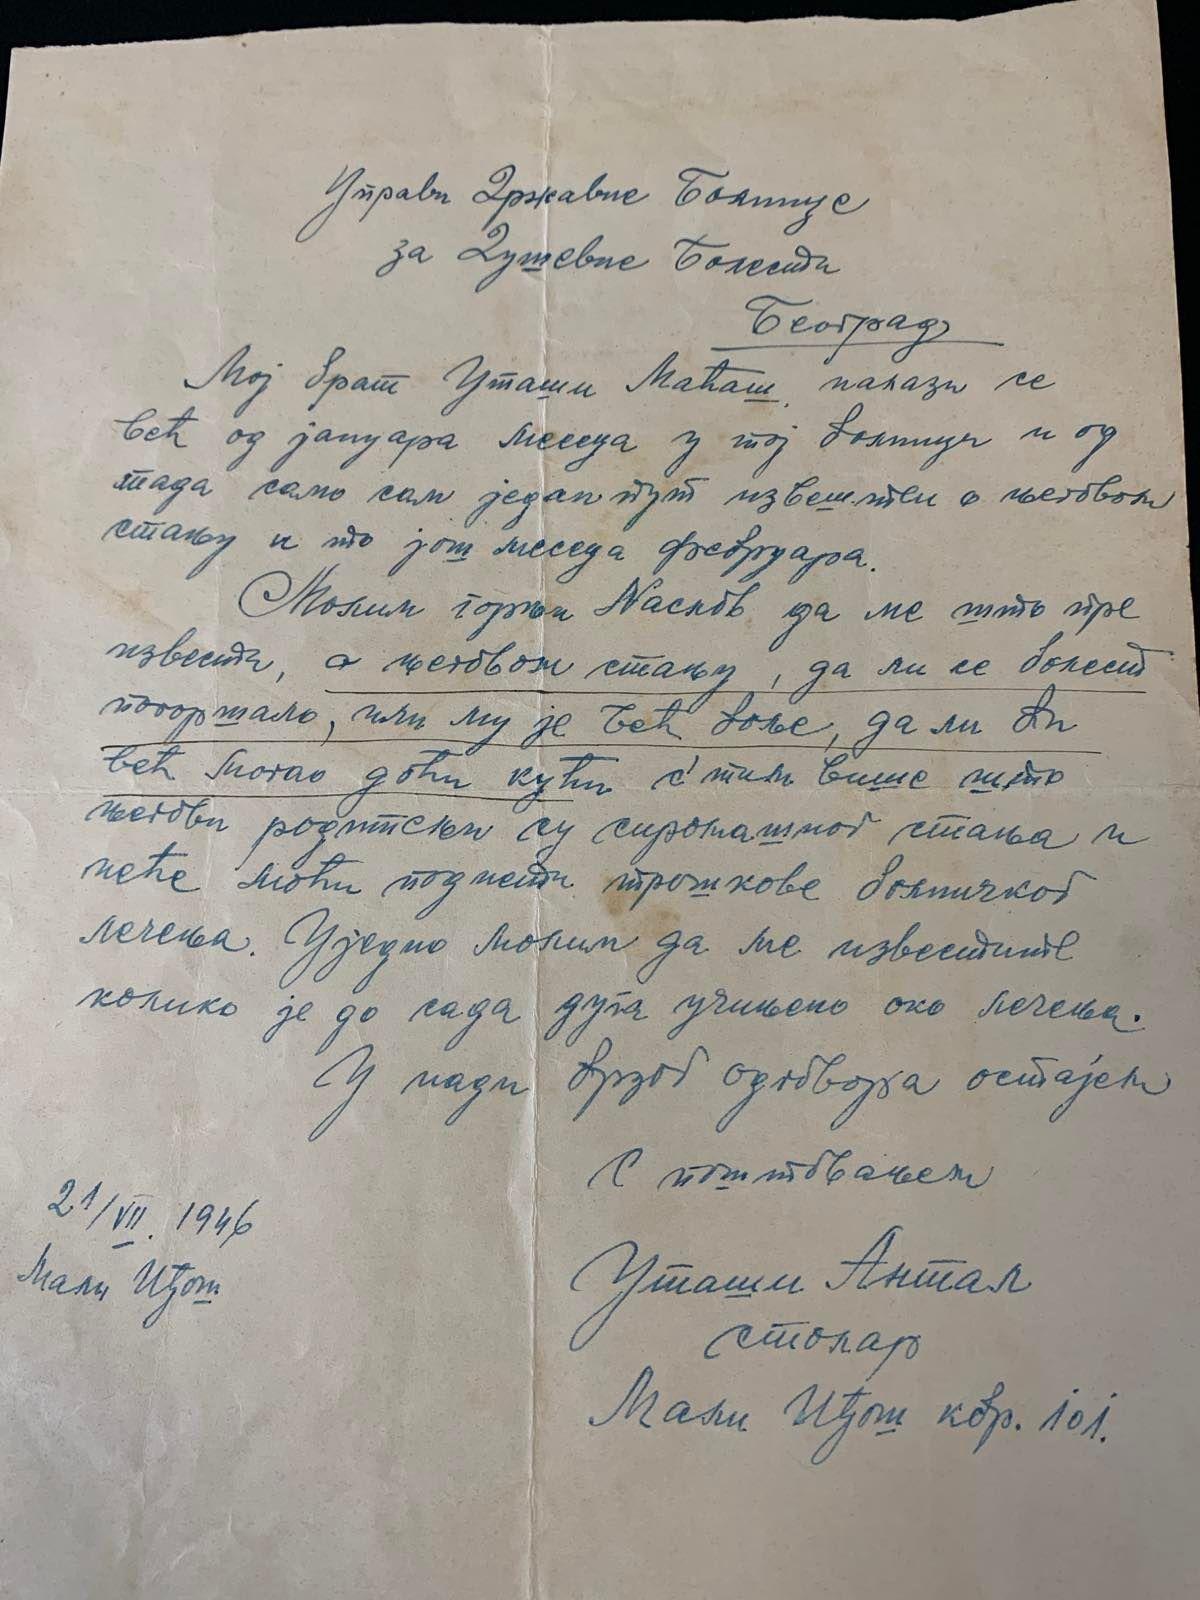 Управи Државне Болнице
за Душевне Болести
Београд
Мој брат Уташи Маћаш, налази се
већ од јануара месеца у тој болници и од
тада само сам једанпут извештен о његовом
стању и то још месеца фебруара.
Молим горњи Наслов да ме што пре
извести, о његовом стању, да ли се болест
погоршало, или му је већ боље, да ли би
већ могао доћи кући с' тим више што
његови родитељи су сиромашног стања и
неће моћи поднети трошкове болничког
лечења. Уједно молим да ме известите
колико је до сада дуга учињено око лечења.
У нади брзог одговора остајем
С поштовањем
21/VII. 1946
Мали Иђош
Уташи Антал
столар
Мали Иђош кбр. 101.